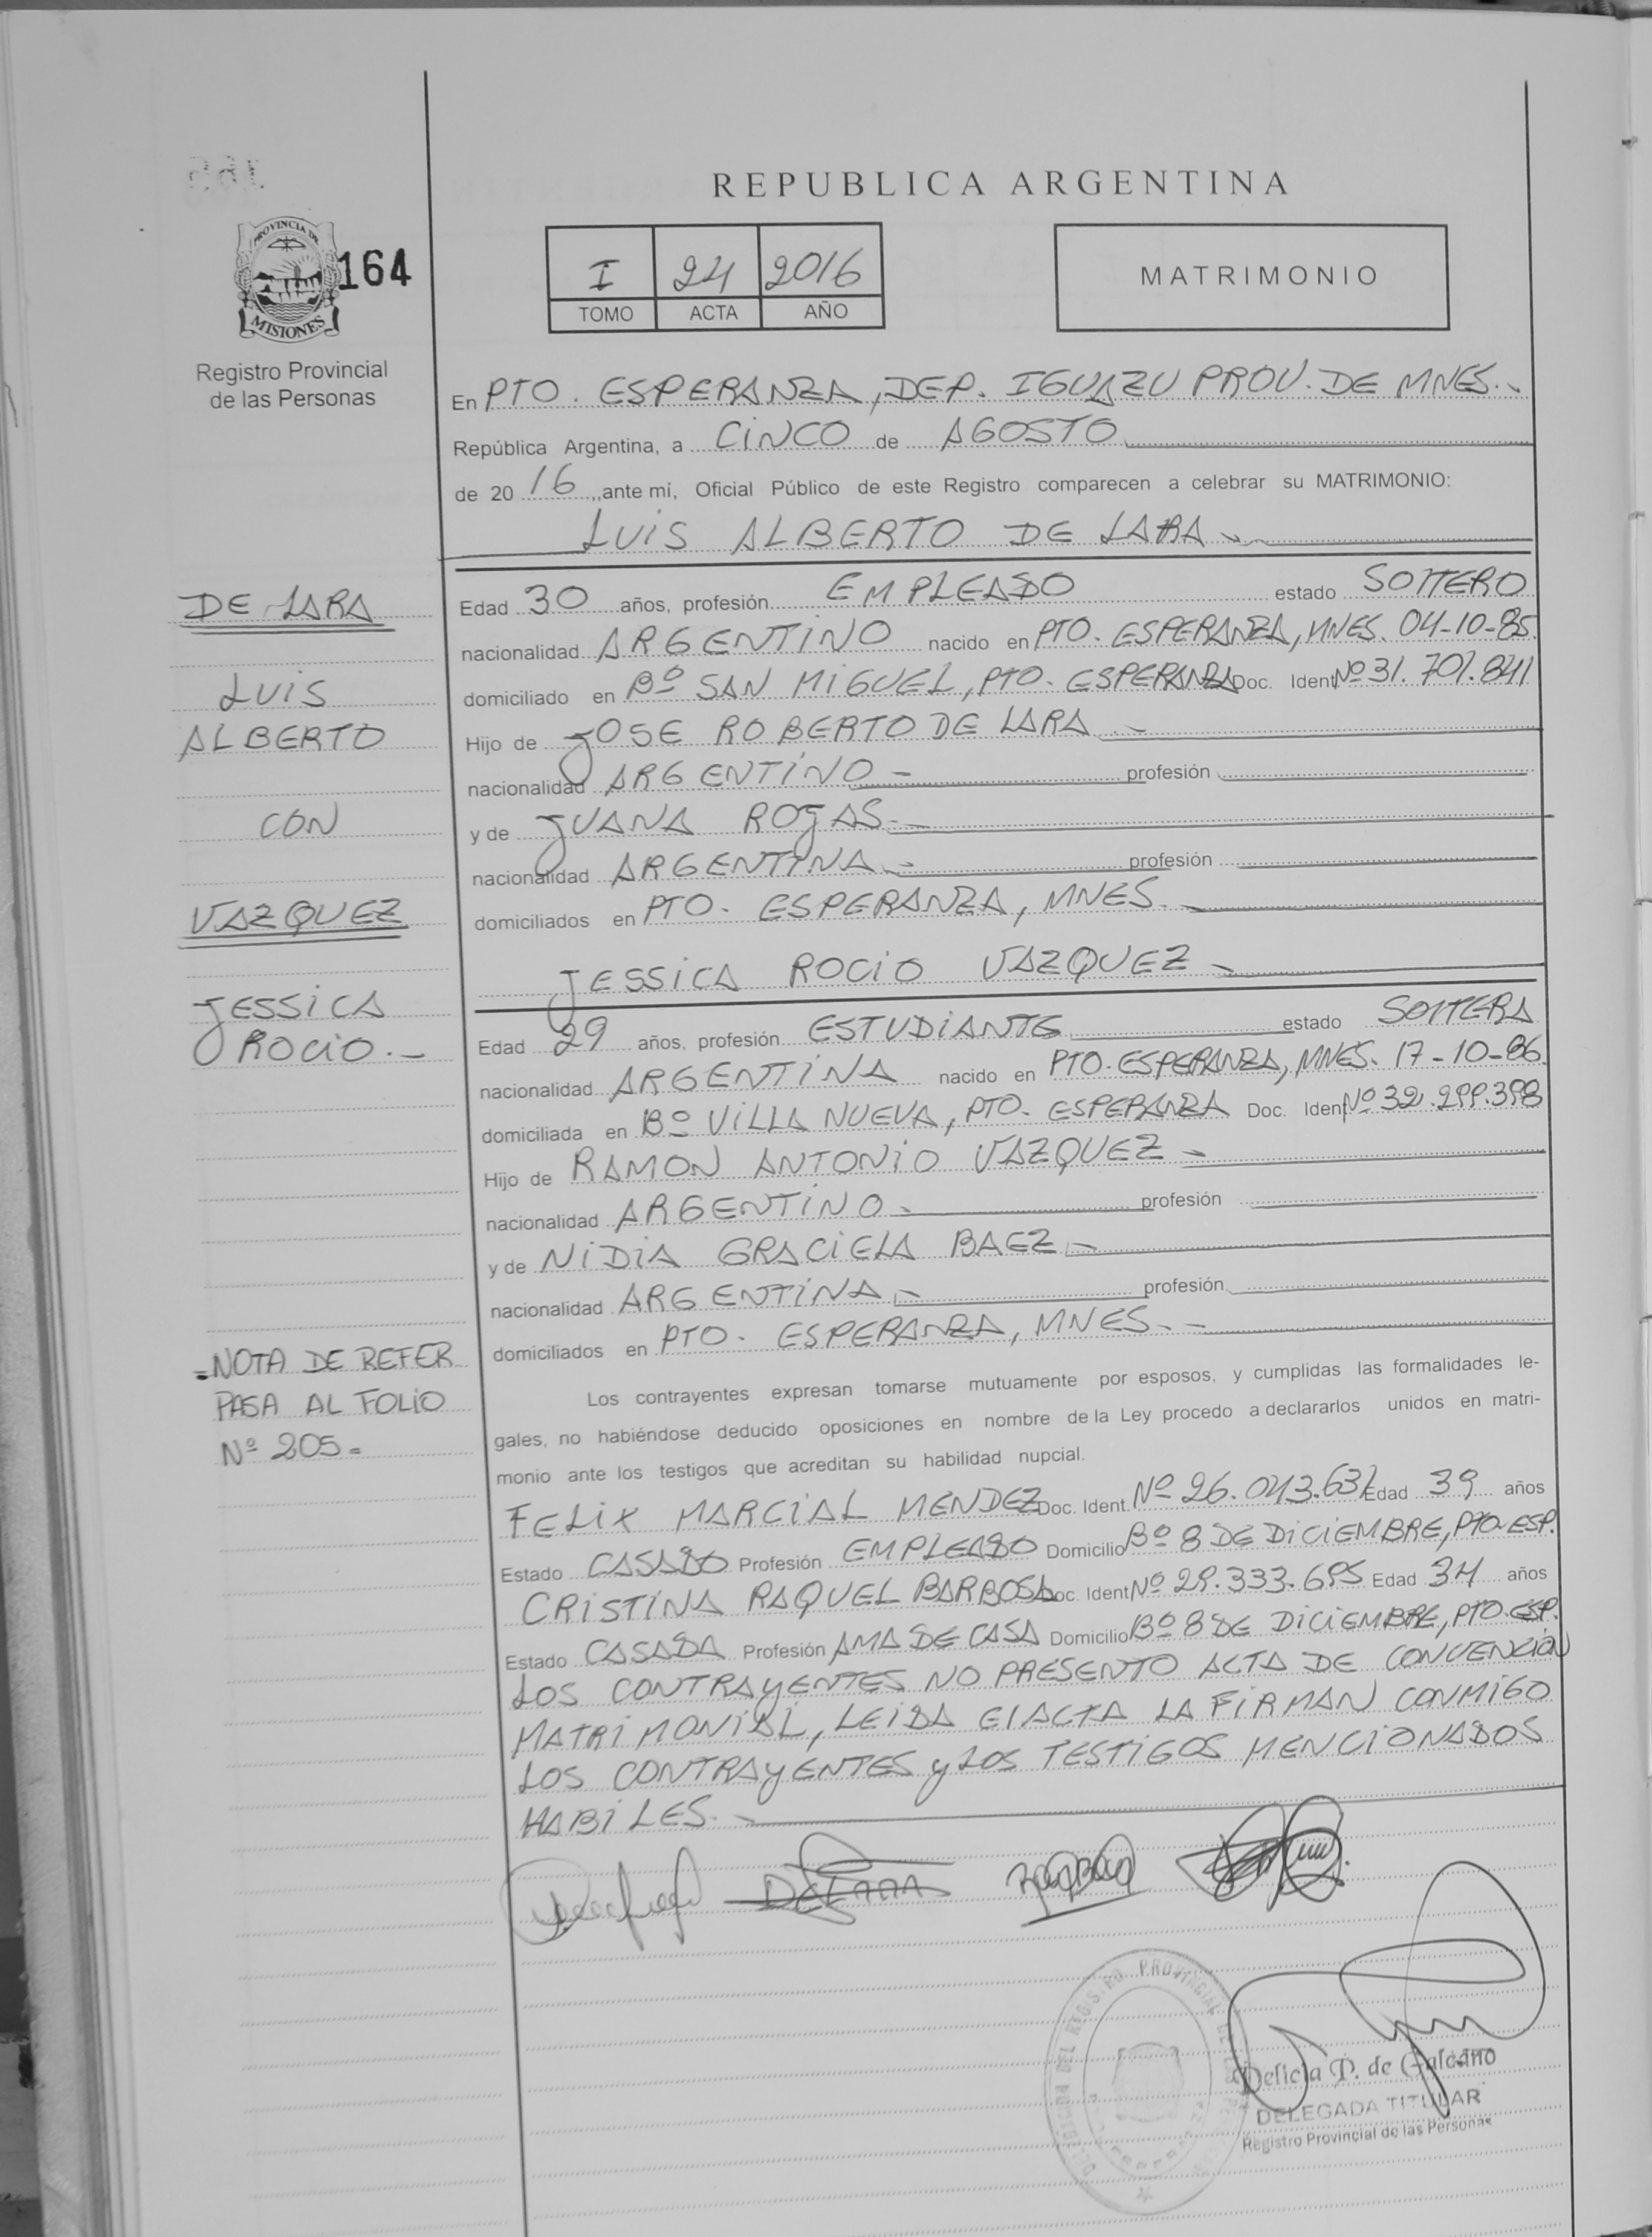 REPUBLICA ARGENTINA
PROVINCIA DE
MISIONES
164
Registro Provincial
de las Personas
I 24 2016
TOMO ACTA AÑO
MATRIMONIO
En PTO. ESPERANZA, DEP. IGUAZU PROV. DE MNES.
República Argentina, a CINCO de AGOSTO
de 20 16, ante mí, Oficial Público de este Registro comparecen a celebrar su MATRIMONIO:
LUIS ALBERTO DE LARA
DE LARA
LUIS
ALBERTO
CON
VAZQUEZ
JESSICA
ROCIO.-
Edad 30 años, profesión EMPLEADO estado SOLTERO
nacionalidad ARGENTINO nacido en PTO. ESPERANZA, MNES. 04-10-85.
domiciliado en Bº SAN MIGUEL, PTO. ESPERANZA Doc. Ident. Nº 31.701.841
Hijo de JOSE ROBERTO DE LARA
nacionalidad ARGENTINO profesión
y de JUANA ROJAS
nacionalidad ARGENTINA profesión
domiciliados en PTO. ESPERANZA, MNES.
JESSICA ROCIO VAZQUEZ
Edad 29 años, profesión ESTUDIANTE estado SOLTERA
nacionalidad ARGENTINA nacido en PTO. ESPERANZA, MNES. 17-10-86.
domiciliada en Bº VILLA NUEVA, PTO. ESPERANZA Doc. Ident. Nº 32.299.398
Hijo de RAMON ANTONIO VAZQUEZ
nacionalidad ARGENTINO profesión
y de NIDIA GRACIELA BAEZ
nacionalidad ARGENTINA profesión
domiciliados en PTO. ESPERANZA, MNES.
- NOTA DE REFER
PASA AL FOLIO
Nº 205=
Los contrayentes expresan tomarse mutuamente por esposos, y cumplidas las formalidades le-
gales, no habiéndose deducido oposiciones en nombre de la Ley procedo a declararlos unidos en matri-
monio ante los testigos que acreditan su habilidad nupcial.
FELIX MARCIAL MENDEZ Doc. Ident. Nº 26.043.631 Edad 39 años
Estado CASADO Profesión EMPLEADO Domicilio Bº 8 DE DICIEMBRE, PTO. ESP.
CRISTINA RAQUEL BARBOSA Doc. Ident. Nº 29.333.695 Edad 34 años
Estado CASADA Profesión AMA DE CASA Domicilio Bº 8 DE DICIEMBRE, PTO. ESP.
LOS CONTRAYENTES NO PRESENTO ACTA DE CONVENCIÓN
MATRIMONIAL, LEIDA El ACTA LA FIRMAN CONMIGO
LOS CONTRAYENTES y LOS TESTIGOS MENCIONADOS
HABILES.
Delicia P. de Galeano
DELEGADA TITULAR
Registro Provincial de las Personas